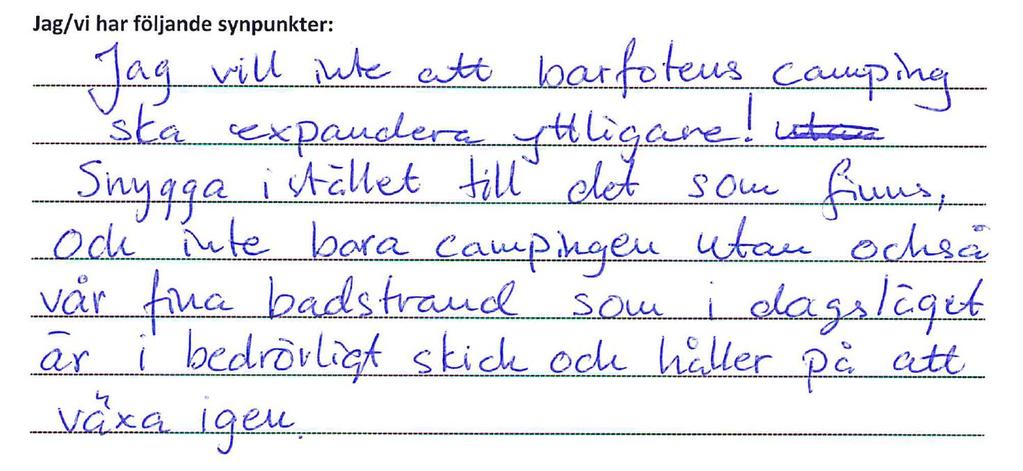 Jag/vi har följande synpunkter:
Jag vill inte att barfotens camping
ska expandera yttligare! utan
Snygga istället till det som finns,
och inte bara campingen utan också
vår fina badstrand som i dagsläget
är i bedrövligt skick och håller på att
växa igen.